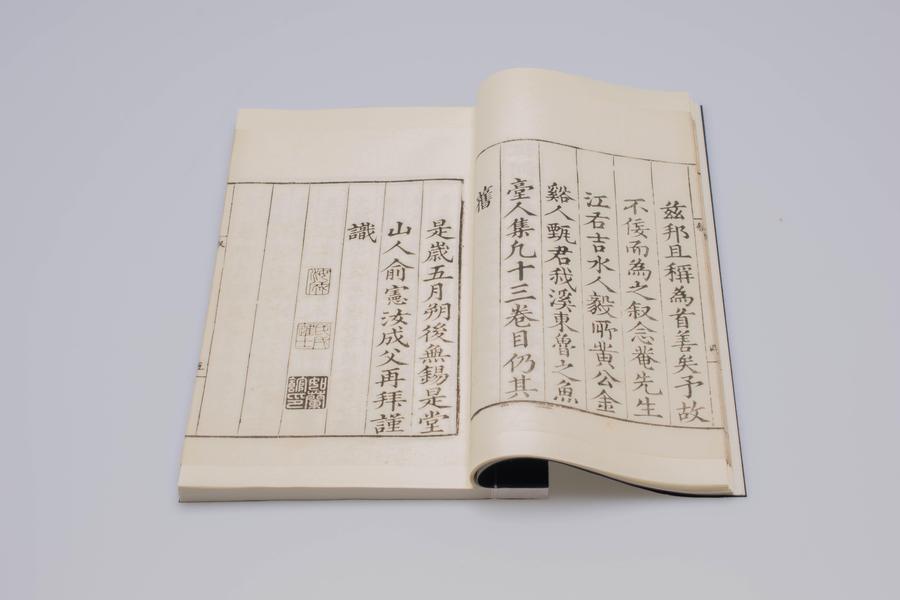 茲邦且稱為首善矣予故
不佞而為之叙念菴先生
江右吉水人毅所黃公金
谿人甄君我溪東魯之魚
臺人集凡十三卷目仍其
舊
是歲五月朔後無錫是堂
山人俞憲汝成父再拜謹
識
汝成